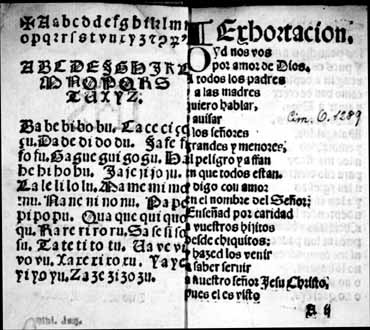 ✠Aabcdefghiklmn
opqrrſstvuxyz
ABCDEFGHIKL
MNOPQRS
TUXYZ.
Babebibobu. Cacecico
cu. Dadedidodu. Fafefi
fofu. Gagueguigogu. Ha
hehihobu. Jajeijoju.
Lalelilolu. Mamemimo
mu. Naneninonu. Pape
pipopu. Quaquequiquo
qu. Rareriroru. Saseſiſo
ſu. Tatetitotu. Uavevi
vovu. Xaxexiroxu. Yaye
yiyoyu. Zazezizozu.
Exhortacion.
Oyd nos vos
por amor de Dios.
A todos los padres
y a las madres
quiero hablar,
y auiſar
los ſeñores
grandes y menores,
el peligro y affan
en que todos estan.
digo con amor
en el nombre del Señor;
Enſeñad por caridad
a vuestros hijitos
desde chiquitos:
hazed los venir
a ſaber ſeruir
a nuestro ſeñor Jeſu Christo,
pues el es visto
A ij
Cim. O. 1289